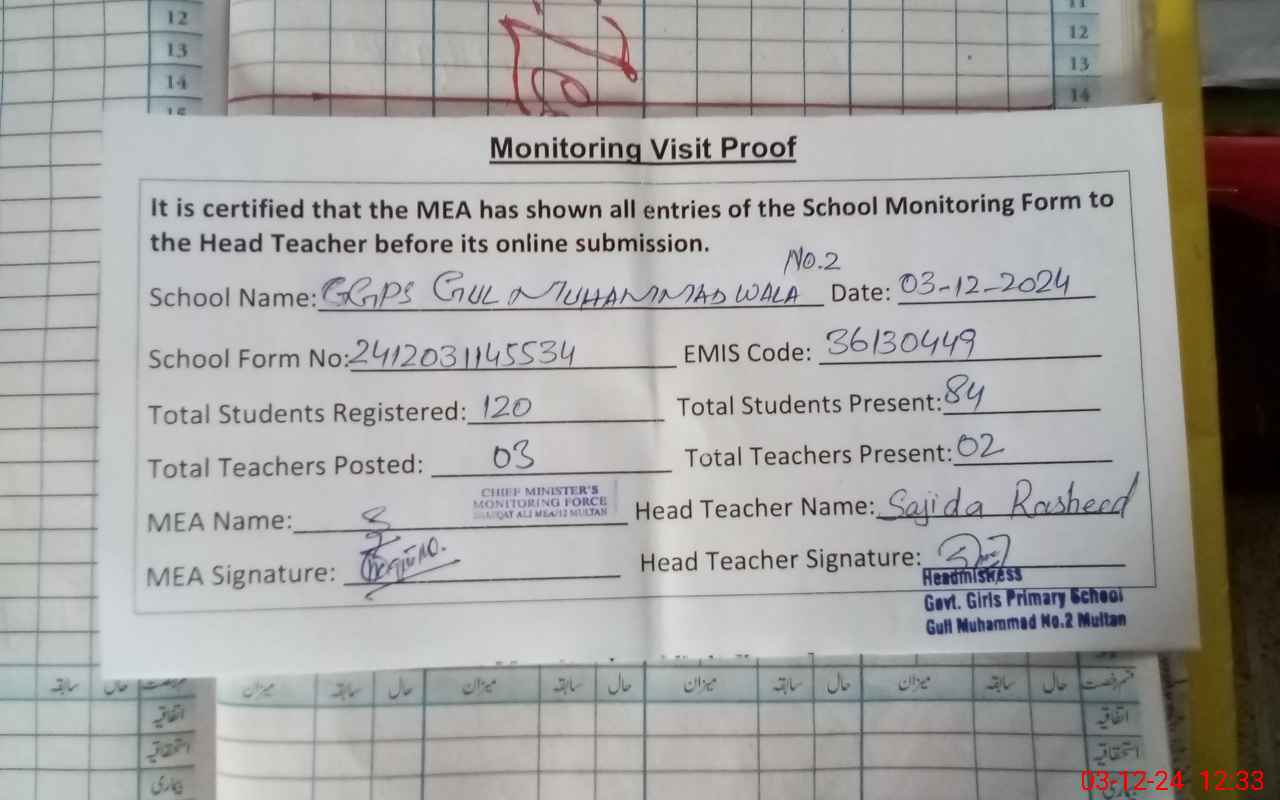 12
13
14
11
12
13
14
Monitoring Visit Proof
It is certified that the MEA has shown all entries of the School Monitoring Form to
the Head Teacher before its online submission.
School Name: GGPS GUL MUHAMMAD WALA No.2 Date: 03-12-2024
School Form No: 2412031145534 EMIS Code: 36130449
Total Students Registered: 120 Total Students Present: 84
Total Teachers Posted: 03 Total Teachers Present: 02
CHIEF MINISTER'S
MONITORING FORCE
ALI MEA/12 MULTAN
MEA Name: Head Teacher Name: Sajida Rasheed
MEA Signature: Head Teacher Signature:
Headmistress
Govt. Girls Primary School
Gull Muhammad No.2 Multan
حال سابقہ
میزان سابقہ حال میزان سابقہ حال میزان سابقہ حال میزان سابقہ حال قسم رخصت
اتفاقیہ
استحقاقیہ
بیماری
اتفاقیہ
استحقاقیہ
03-12-24 12:33